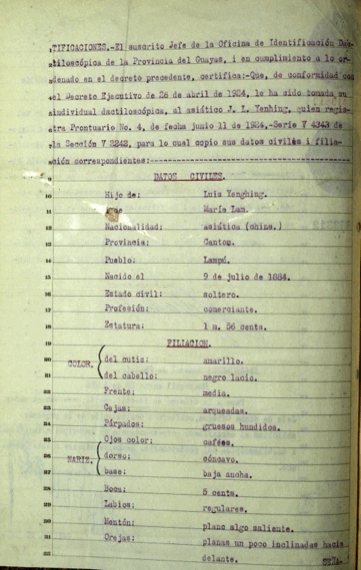 TIFICACIONES.-El suscrito Jefe de la Oficina de Identificación Dac-
tiloscópica de la Provincia del Guayas, i en cumplimiento a lo or-
denado en el decreto precedente, certifica:-Que, de conformidad con
el Decreto Ejecutivo de 26 de abril de 1924, le ha sido tomada su
individual dactiloscópica, al asiático J. L. Yenhing, quién regis-
tra Prontuario No. 4, de fecha junio 11 de 1924.-Serie V 4343 de
la Sección V 2242, para lo cual copio sus datos civiles i filia-
ción correspondientes:-
9 DATOS CIVILES.
10 Hijo de: Luis Yenghing.
11 María Lam.
12 Nacionalidad: asiática (china.)
13 Provincia: Canton.
14 Pueblo: Lampú.
15 Nacido el 9 de julio de 1884.
16 Estado civil: soltero.
17 Profesión: comerciante.
18 Estatura: 1 m. 56 cents.
19 FILIACION.
20 COLOR, del cutis: amarillo.
21 del cabello: negro lacio.
22 Frente: media.
23 Cejas: arqueadas.
24 Párpados: gruesos hundidos.
25 Ojos color: cafées.
26 NARIZ. dorso: cóncavo.
27 base: baja ancha.
28 Boca: 5 cents.
29 Labios: regulares.
30 Mentón: plano algo saliente.
31 Orejas: planas un poco inclinadas hacia
32 delante. SEÑA-